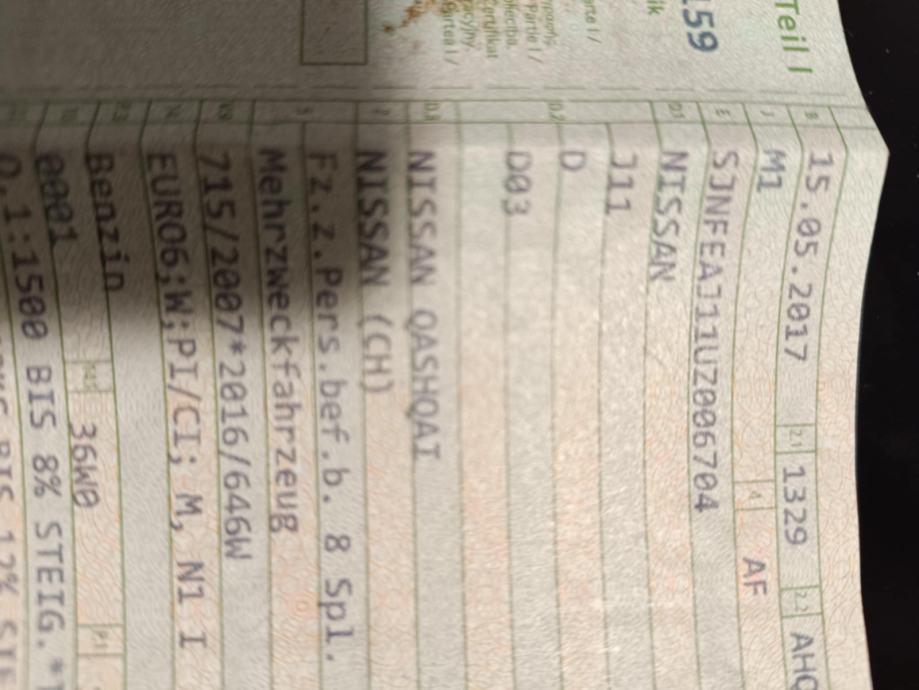 Teil I
159
B 15.05.2017 2.1 1329 2.2 AHO
J M1 4 AF
E SJNFEAJ11UZ006704
D.1 NISSAN
J11
D.2 D
D03
D.3 NISSAN QASHQAI
2 NISSAN (CH)
5 Fz.z.Pers.bef.b. 8 Spl.
Mehrzweckfahrzeug
V.9 715/2007*2016/646W
14 EURO6;W;PI/CI; M, N1 I
P.3 Benzin
10 0001 14.1 36W0 P.1
0.1:1500 BIS 8% STEIG.*
BIS 12%